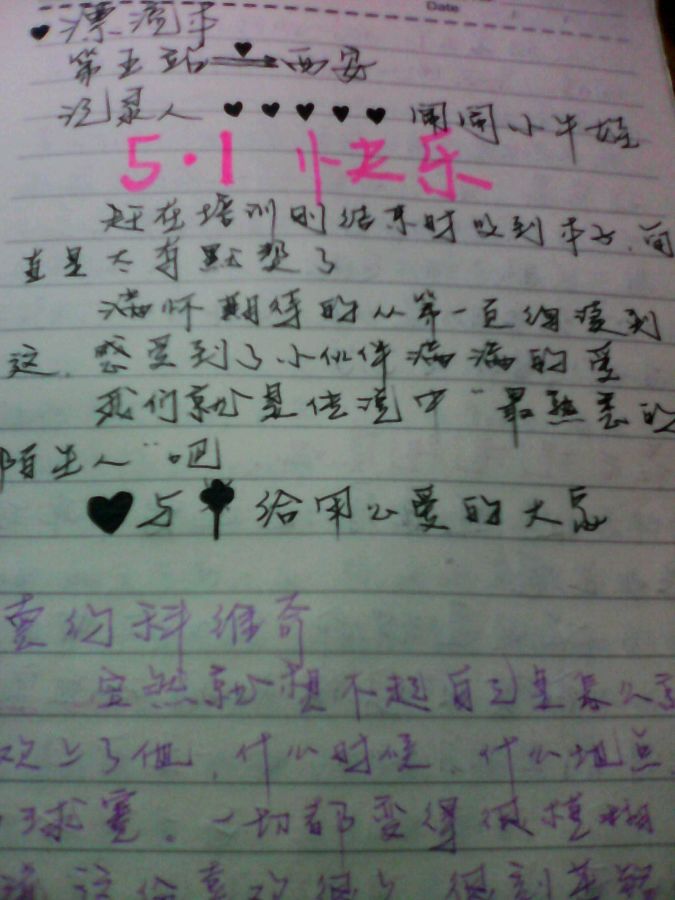 Date
漂流本
第五站 西安
记录人 闹闹小牛娃
5·1 快乐
赶在培训刚结束时收到本子,简
直是太有默契了
满怀期待的从第一页细读到
这,感受到了小伙伴满满的爱
我们就是传说中"最熟悉的
陌生人"吧
与 给用心爱的大家
德约科维奇
突然就想不起自己是怎么喜
欢上了他,什么时候,什么地点
球赛。一切都变得很模糊